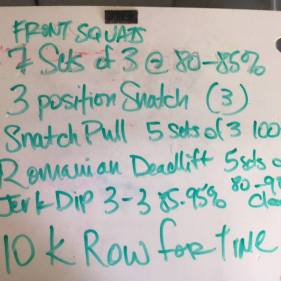 FRONT SQUATS
7 Sets of 3 @ 80-85%
3 position Snatch (3)
Snatch Pull 5 sets of 3 100
Romanian Deadlift 5 sets o
Jerk Dip 3-3 85.95% 80-9
Cle
10 K Row for time